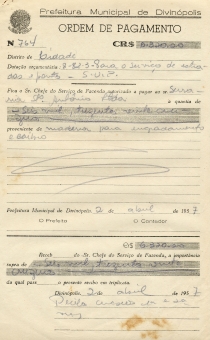 Prefeitura Municipal de Divinópolis
ORDEM DE PAGAMENTO
N 764 CR$ 6.320,00
Distrito de Cidade
Dotação orçamentária 8-82-3- Para o serviço de estra
das e pontes
Fica o Sr. Chefe do Serviço de Fazenda autorizado a pagar ao Serra
ria Sto Antonio Ltda
a quantia de
Seis mil, trezentos, vinte cru
zeiros
proveniente de madeira para
Prefeitura Municipal de Divinópolis 2 de abril de 1957
O Prefeito O Contador
CR$ 6.320,00
Receb do Sr. Chefe do Serviço de Fazenda, a importância
supra de Seis mil trezentos vinte
cruzeiros
da qual passo o presente recibo em triplicata.
Divinópolis, 2 de abril de 1957